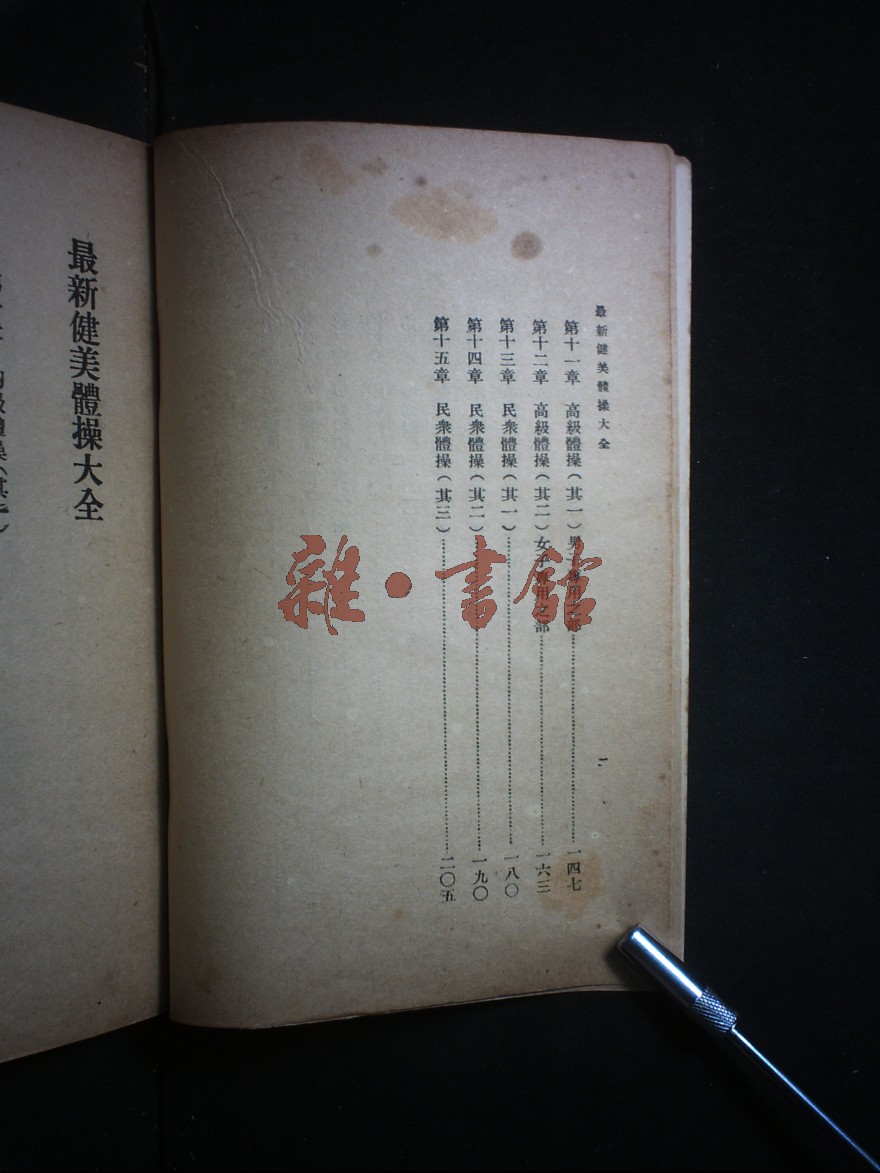 最新健美體操大全
第十一章 高級體操(其一)男子專用之部…………一四七
第十二章 高級體操(其二)女子專用之部…………一六三
第十三章 民衆體操(其一)…………一八〇
第十四章 民衆體操(其二)…………一九〇
第十五章 民衆體操(其三)…………二〇五
二
雜·書館
最新健美體操大全